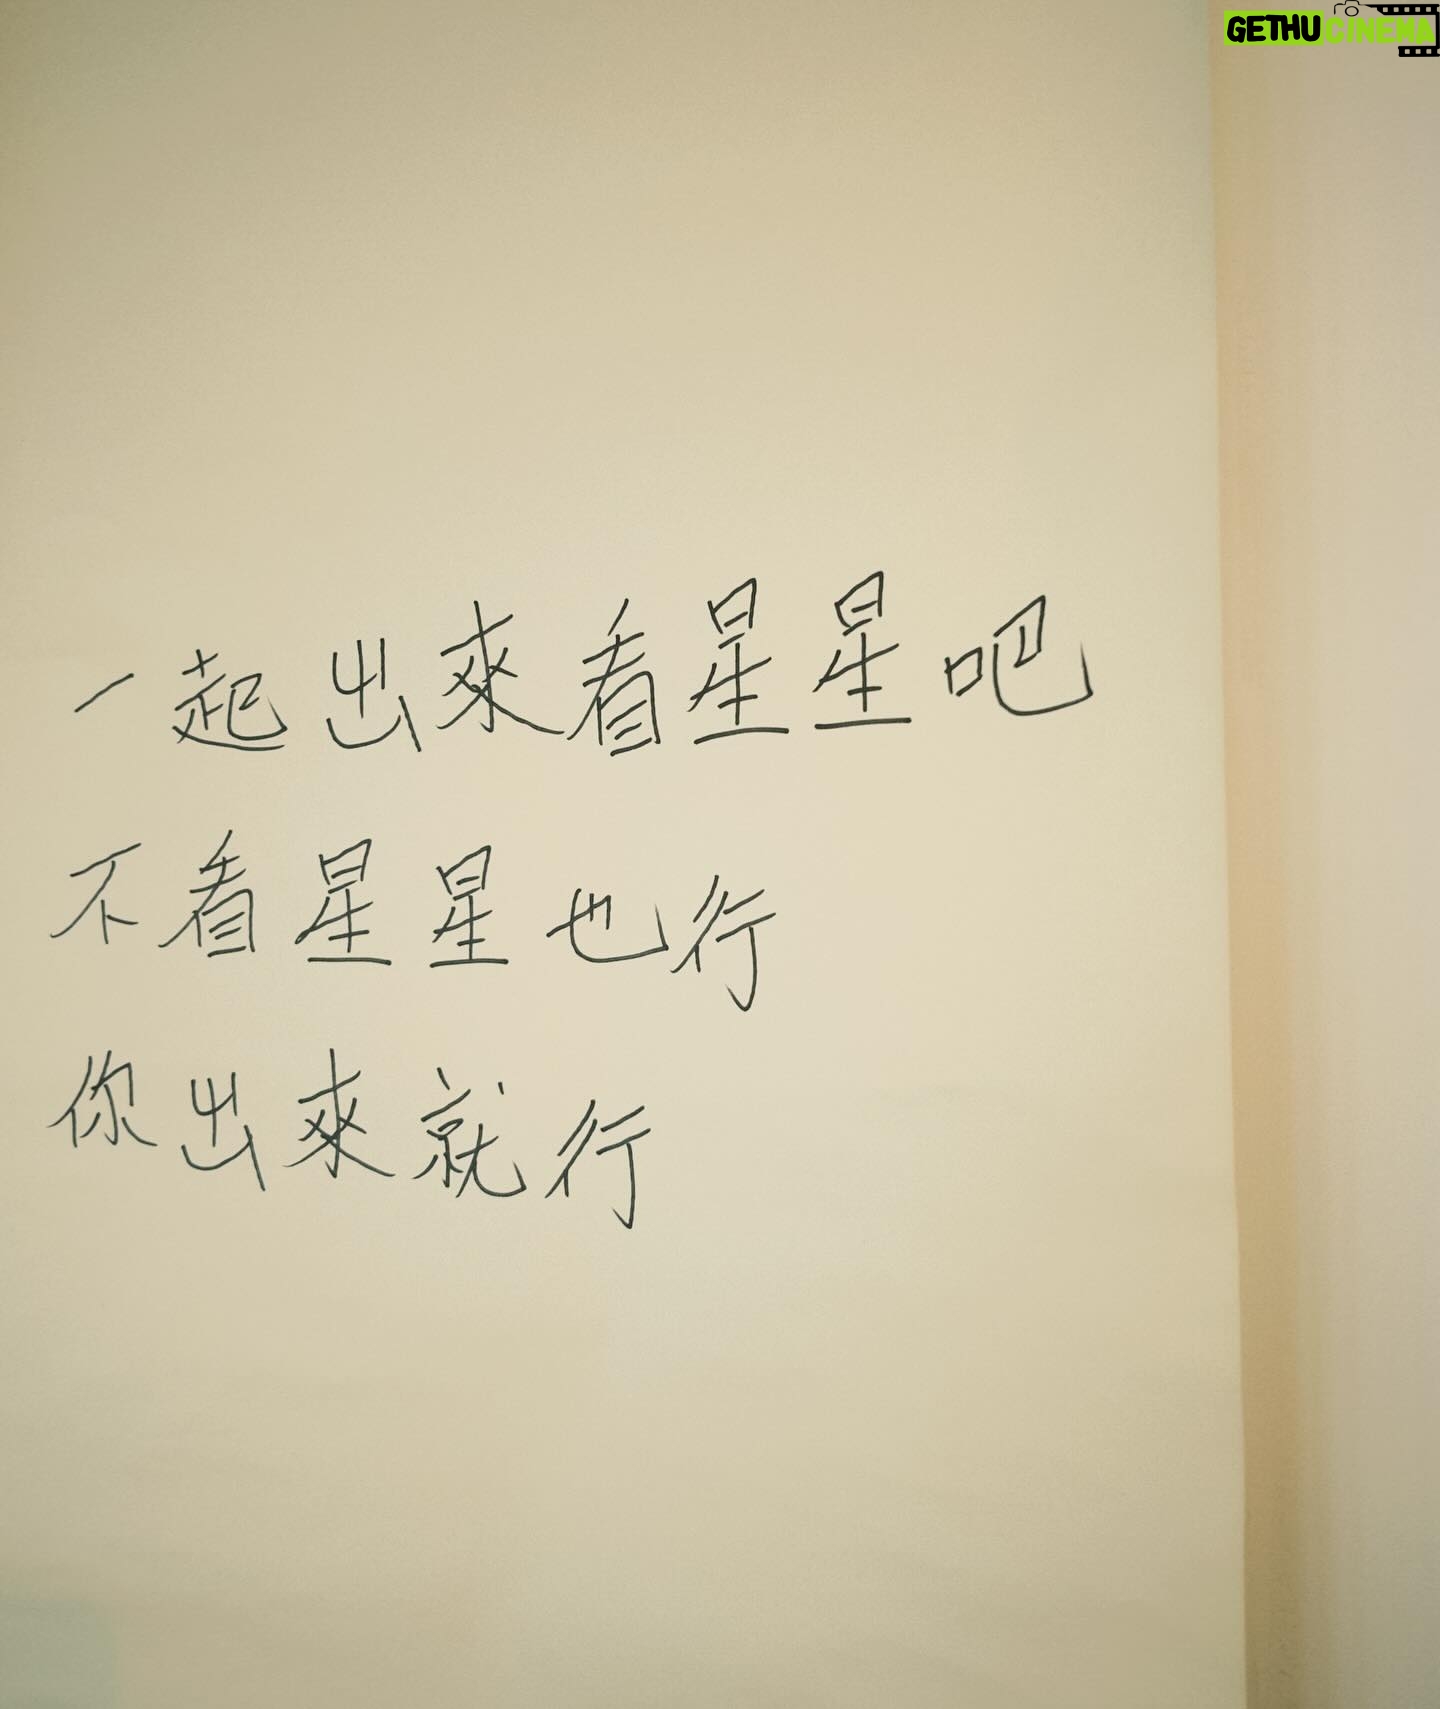 GETHUCINEMA
一起出來看星星吧
不看星星也行
你出來就行